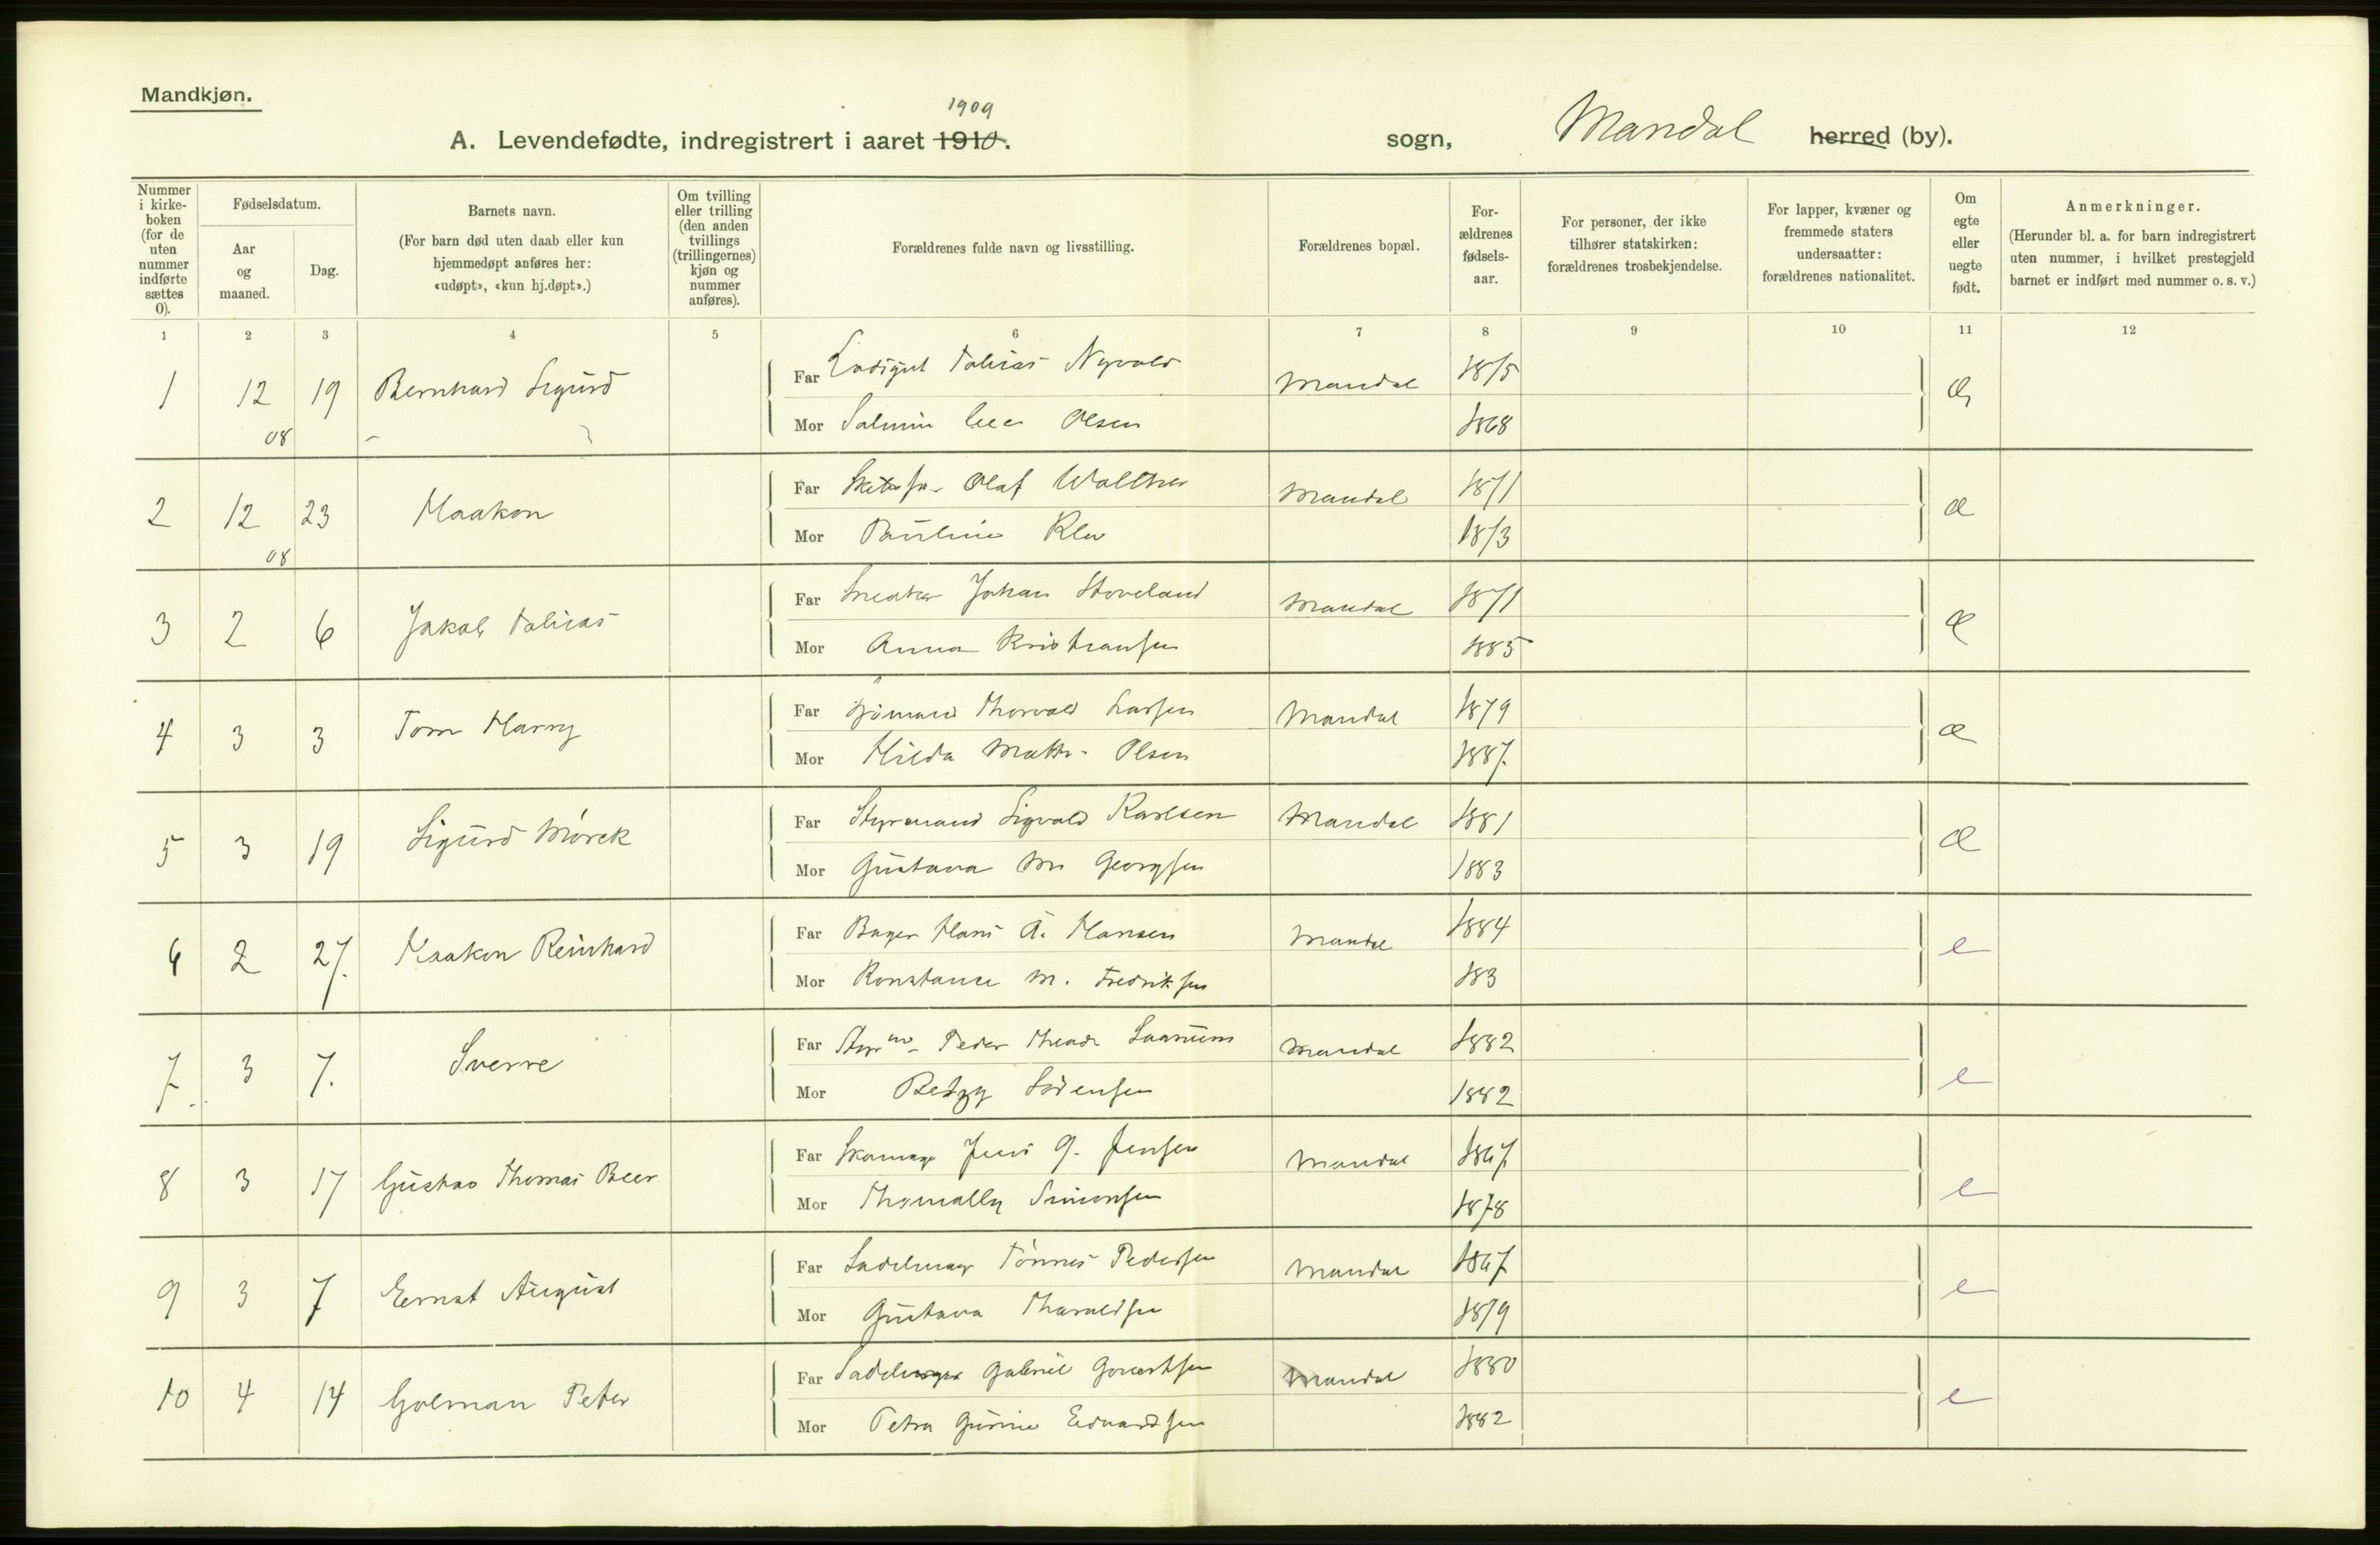 Mandkjøn.
1909
A. Levendefødte, indregistrert i aaret 1910.
sogn, Mandal herred (by).
Nummer i kirke- boken (for de uten nummer indførte sættes 0).
Fødselsdatum.
Aar og maaned.
Dag.
Barnets navn.
(For barn død uten daab eller kun hjemmedøpt anføres her: «udøpt», «kun hj.døpt».)
Om tvilling eller trilling (den anden tvillings (trillingernes) kjøn og nummer anføres).
Forældrenes fulde navn og livsstilling.
Forældrenes bopæl.
For- ældrenes fødsels- aar.
For personer, der ikke tilhører statskirken: forældrenes trosbekjendelse.
For lapper, kvæner og fremmede staters undersaatter: forældrenes nationalitet.
Om egte eller uegte født.
Anmerkninger.
(Herunder bl. a. for barn indregistrert uten nummer, i hvilket prestegjeld barnet er indført med nummer o. s. v.)
1 2 3 4 5 6 7 8 9 10 11 12
1 12 08 19 Bernhard Sigurd Far Tobias Nyvold Mandal 1875
Mor Olsen 1868
2 12 08 23 Haakon Far Olaf Mandal 1871
Mor Pauline 1873
3 2 6 Jakob Tobias Far Johan Stoveland Mandal 1871
Mor Anna Kristiansen 1885
4 3 3 Tom Harry Far Sjömand Thorvald Larsen Mandal 1879
Mor Hilda Olsen 1887
5 3 19 Sigurd Mörck Far Styrmand Sigvald Karlsen Mandal 1881
Mor Gustava Georgsen 1883
6 2 27. Haakon Reinhard Far Bager Hans A. Hansen Mandal 1884 e
Mor Konstance M. Fredriksen 183
7. 3 7. Sverre Far Styrm. Peder Mandal 1882 e
Mor Betzy Sörensen 1882
8 3 17 Gustav Thomas Beer Far Jens G. Jensen Mandal 1867 e
Mor Simonsen 1878
9 3 7 Ernst August Far Sadelmager Tönnes Pedersen Mandal 1867 e
Mor Gustava Haraldsen 1879
10 4 14 Golman Peter Far Sadelmager Gabriel Mandal 1880 e
Mor Petra Edvardsen 1882